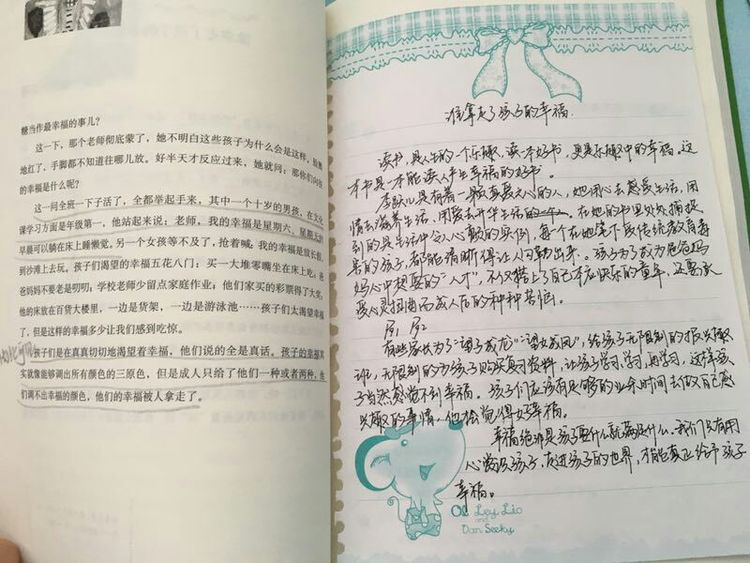 糖当作最幸福的事儿?
这一下,那个老师彻底蒙了,她不明白这些孩子为什么会是这样,尴尬
地红了,手脚都不知道往哪儿放。好半天才反应过来,她就问:那你们向往
的幸福是什么呢?
这一问全班一下子活了,全都举起手来,其中一个十岁的男孩,在文化
课学习方面是年级第一,他站起来说:老师,我的幸福是星期六、星期天的
早晨可以躺在床上睡懒觉。另一个女孩等不及了,抢着喊:我的幸福是放长假,
到沙滩上去玩。孩子们渴望的幸福五花八门:买一大堆零嘴坐在床上吃;爸
爸妈妈不要老是叨叨;学校老师少留点家庭作业;他们家买的彩票得了大奖,
他的床放在百货大楼里,一边是货架,一边是游泳池……孩子们太渴望幸福
了,但是这样的幸福多少让我们感到吃惊。
孩子们是在真真切切地渴望着幸福,他们说的全是真话。孩子的幸福其
实就像能够调出所有颜色的三原色,但是成人只给了他们一种或者两种,他
们调不出幸福的颜色,他们的幸福被人拿走了。
谁拿走了孩子的幸福
读书,是人生的一个乐趣,读一本好书,更是乐趣中的幸福。这
本书是一本能读人半生幸福的好书。
李跃儿是有着一颗真善美心的人,她用心去感受生活,用
情去滋养生活,用爱去升华生活的。在她的书里处处捕捉
到的是生活中令人心颤的实例,每个在她笔下反传统教育毒
害的孩子,都能清晰得让人勾勒出来。孩子为了成为爸爸妈
妈心中想要的“人才”,不仅搭上了自己本应快乐的童年,还要承
受心灵扭曲而成人后的种种苦恼。
有些家长为了“望子成龙”“望女成凤”,给孩子无限制的报兴趣
班,无限制的为孩子购买复习资料,让孩子学习、学习、再学习,这样孩
子当然感觉不到幸福。孩子们应该有足够的业余时间去做自己感
兴趣的事情,他会觉得好幸福。
幸福绝非是孩子要什么就满足什么。我们只有用
心赏识孩子,走进孩子的世界,才能真正给予孩子
幸福。
Ol Ley Lio
and
Don Seeky